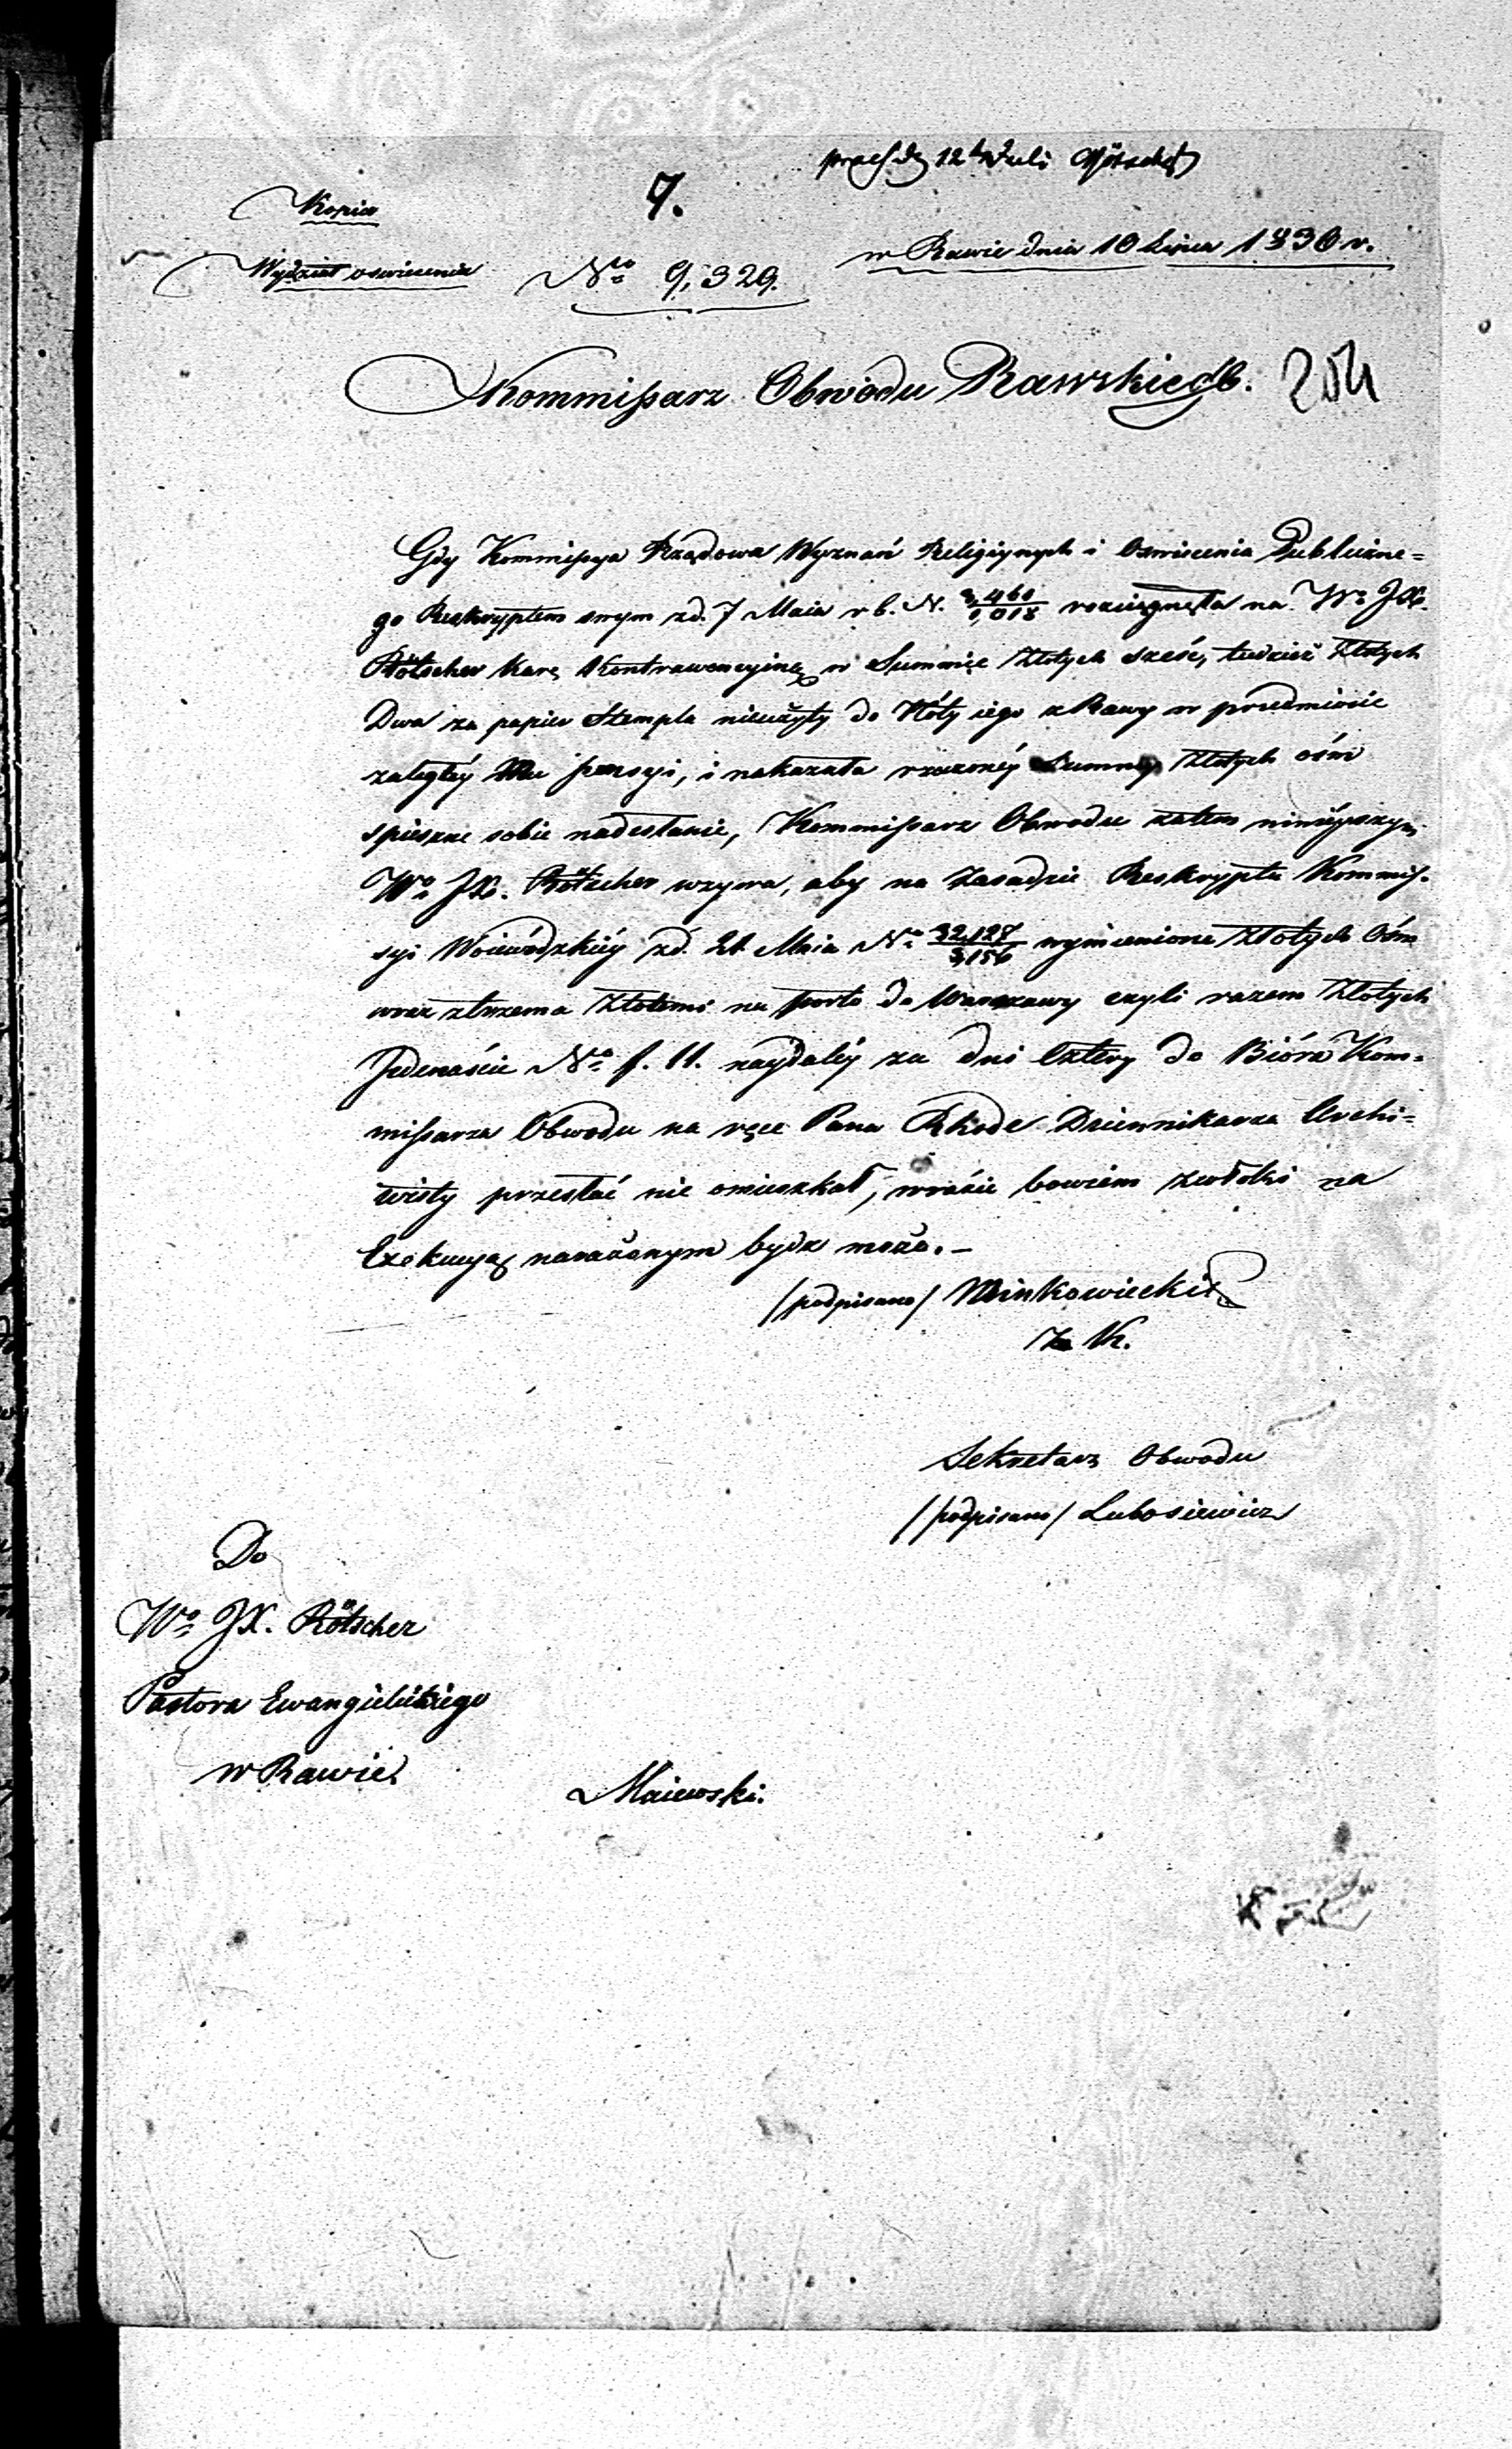 praes d 12t Juli Rötscher
Kopia
7.
w Rawie dnia 10 Lipca 1830 r.
Wydział oswiecenia No 9,329.
Kommissarz Obwodu Rawskiego. 204
Gdy Kommissya Rządowa Wyznań Religiynych i Oswiecenia Publiczne=
go Reskryptem swym zd. 7 Maia r b. N. 3,460/1,018 rozciągnęła na Wo JX.
Rötscher karę Kontrawencyiną w Summie Złotych sześć, tudzież Złotych
Dwa za papier Stempla nieużyty do Nóty iego z Rawy w przedmiocie
zaległéy Mu pensyi, i nakazała rzeczonéy Summy Złotych ośm
spieszne sobie nadesłanie, Kommissarz Obwodu zatem ninieyszym
Wo JX. Rötscher wzywa, aby na zasadzie Reskryptu Kommis=
syi Woiewódzkiéy zd. 21 Maia No 32,127/3,156 wymienione Złotych Ośm
wraz z trzema Złotemi na porto do Warszawy czyli razem Złotych
Jedenaście No f. 11. naydaléy za dni Cztery do Bióra Kom=
missarza Obwodu na ręce Pana Rhode Dziennikarza Archi=
wisty przesłać nie omieszkał, w razie bowiem zwłoki na
Exekucyą narażonym bydz może. —
/podpisano/ Minkowiecki
Za K.
Sekretarz Obwodu
/podpisano/ Lubosiewicz
Do
Wo JX. Rötscher
Pastora Ewangielickiego
w Rawie
Maiewski.